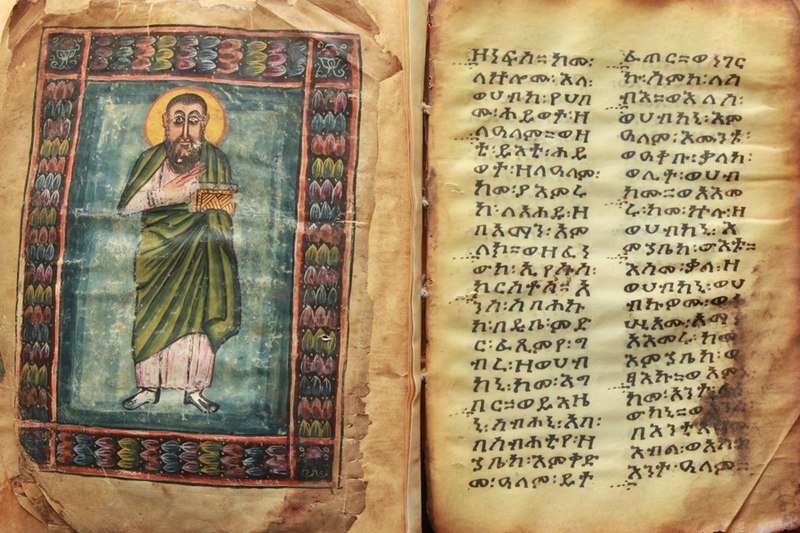 ዘነፍስ። ከመ፡
ለኵሎሙ፡ እለ፡
ወሀብከ፡ የሀቦ
ሙ፡ ሕይወት፡ ዘ
ለዓለም። ወዛ
ቲ፡ ይእቲ፡ ሕይ
ወት፡ ዘለዓለም፡
ከመ፡ ያእምሩ
ከ፡ ለአሐዱ፡ ዘ
በአማን፡ አም
ላክ። ወዘፈነ
ውከ፡ ኢየሱስ፡
ክርስቶስ። አ
ንሰ፡ ሰባሕኩ
ከ፡ በዲበ፡ ምድ
ር፡ ፈጺምየ፡ ግ
ብረ፡ ዘወሀብ
ከኒ፡ ከመ፡ እግ
በር። ወይእዜ
ኒ፡ ሰብሐኒ፡ አባ፡
በስብሐቲየ፡ ዘ
ኀቤከ፡ እምቅድ
መ፡ ዓለም፡ ይት
ፈጠር። ወነገር
ኩ፡ ስመከ፡ ለሰ
ብእ። ወእለሰ፡
ወሀብከኒ፡ እም
ዓለም፡ እሙንቱ፡
ወዓቀቡ፡ ቃለከ፡
ወሊተ፡ ወሀብ
ከመ። ወአእመ
ሩ፡ ከመ፡ ኵሉ፡ ዘ
ወሀብከኒ፡ እ
ምኀቤከ፡ ውእቱ።
እስመ፡ ቃለ፡ ዘ
ወሀብከኒ፡ ወሀ
ብክዎሙ፡ ወ
አእመሩ፡ ከመ
እምኀቤከ፡ ወ
ፃእኩ። ወአም
ከመ፡ አንተ
ውከኒ።
በእንተ
እብል፡
እንተ፡ ዓለም።